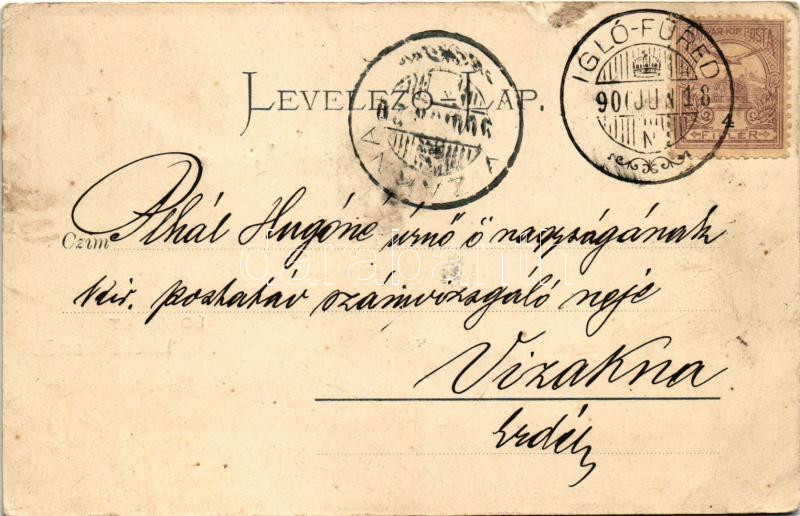 LEVELEZŐ-LAP.
IGLÓ-FÜRED
900 JUN 18
N
MAGYAR KIR. POSTA
4
FILLÉR
VIZAKNA
Czim
Hugóné úrnő ő nagyságának
kir. postatáv számvizsgaló neje
Vizakna
Erdély
darabanth